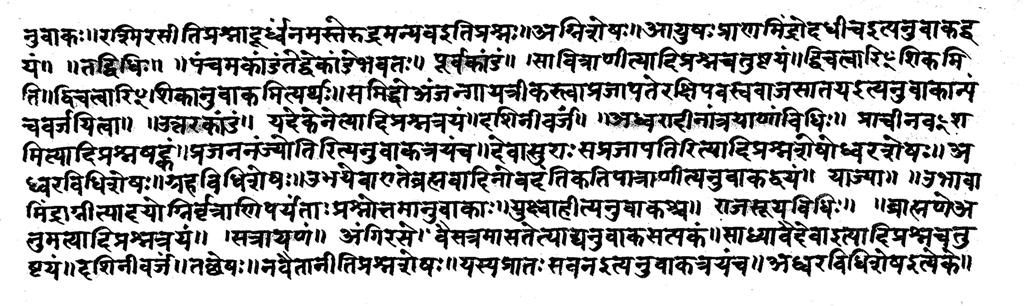 नुवाकः॥रश्मिरसीतिप्रश्नादूर्ध्वंनमस्तेरुद्रमन्यवइतिप्रश्नः॥अग्निशेषः॥आयुषःप्राणमिंद्रोदधीचइत्यनुवाकद्व
यं॥ ॥तद्विधिः॥ ॥पंचमकांडंतेद्वेकांडेभवतः॥ पूर्वकांडं॥ ॥सावित्राणीत्यादिप्रश्नचतुष्टयं॥द्विचत्वारिꣳशिकमि
ति॥द्विचत्वारिꣳशिकानुवाकमित्यर्थः॥समिद्धोअंजन्गायत्रीकस्त्वाप्रजापतेरक्षिपवस्ववाजसातयइत्यनुवाकान्पं
चवर्जयित्वा॥ ॥उत्तरकांडं॥ यदेकेनेत्यादिप्रश्नत्रयं॥दशिनीवर्जं॥ ॥अध्वरादीनांत्रयाणांविधिः॥ प्राचीनवꣳश
मित्यादिप्रश्नषट्कं॥प्रजननंज्योतिरित्यनुवाकत्रयंच॥देवासुराःसप्रजापतिरित्यादिप्रश्नशेषोध्वरशेषः॥अ
ध्वरविधिशेषः॥ग्रहविधिशेषः॥उभयेवाएतेब्रह्मवादिनोवदंतिकतिपात्राणीत्यनुवाकद्वयं॥ याज्या॥ ॥उभावा
मिंद्राग्नीत्यादयोग्निर्वृत्राणिपर्यंताःप्रश्नोत्तमानुवाकाः॥युक्ष्वाहीत्यनुवाकश्च॥ राजसूयविधिः॥ ॥ब्राह्मणेअ
नुमत्यादिप्रश्नत्रयं॥ ॥सत्रायणं॥ अंगिरसोवैसत्रमासतेत्याद्यनुवाकसप्तकं॥साध्यावैदेवाइत्यादिप्रश्नचतु
ष्टयं॥दशिनीवर्जं॥तच्छेषः॥नवैतानीतिप्रश्नशेषः॥यस्यप्रातःसवनइत्यनुवाकत्रयंच॥अध्वरविधिशेषइत्येके॥